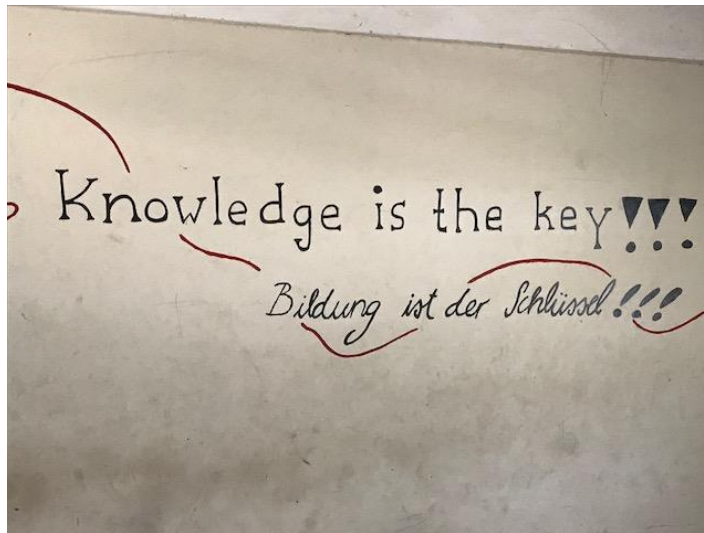 Knowledge is the key!!!
Bildung ist der Schlüssel!!!